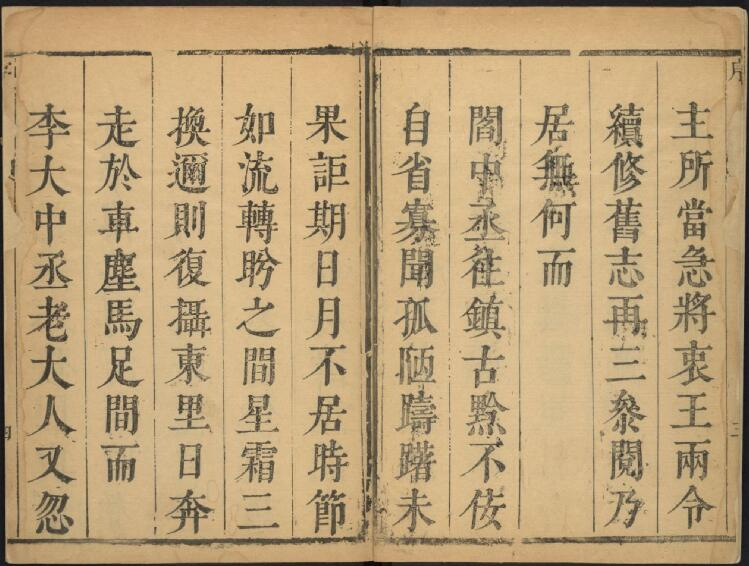 主所當急將衷王兩令
續修舊志再三叅閱乃
居無何而
閣中丞往鎮古黔不佞
自省寡聞孤陋躊躇未
果詎期日月不居時節
如流轉盻之間星霜三
換邇則復攝東里日奔
走於車塵馬足間而
李大中丞老大人又忽
序
三
四